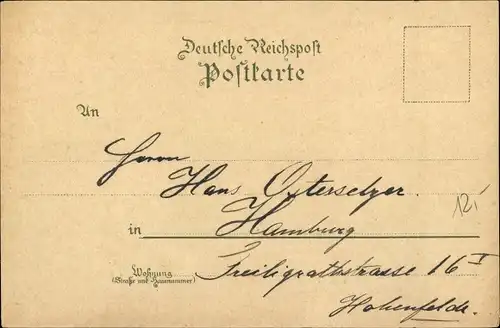 Deutsche Reichspost
Postkarte
An
Herrn
Hans Osterselzer.
12,-
in Hamburg
Wohnung Freiligrathstrasse 16 I
(Straße und Hausnummer)
Hohenfelde.